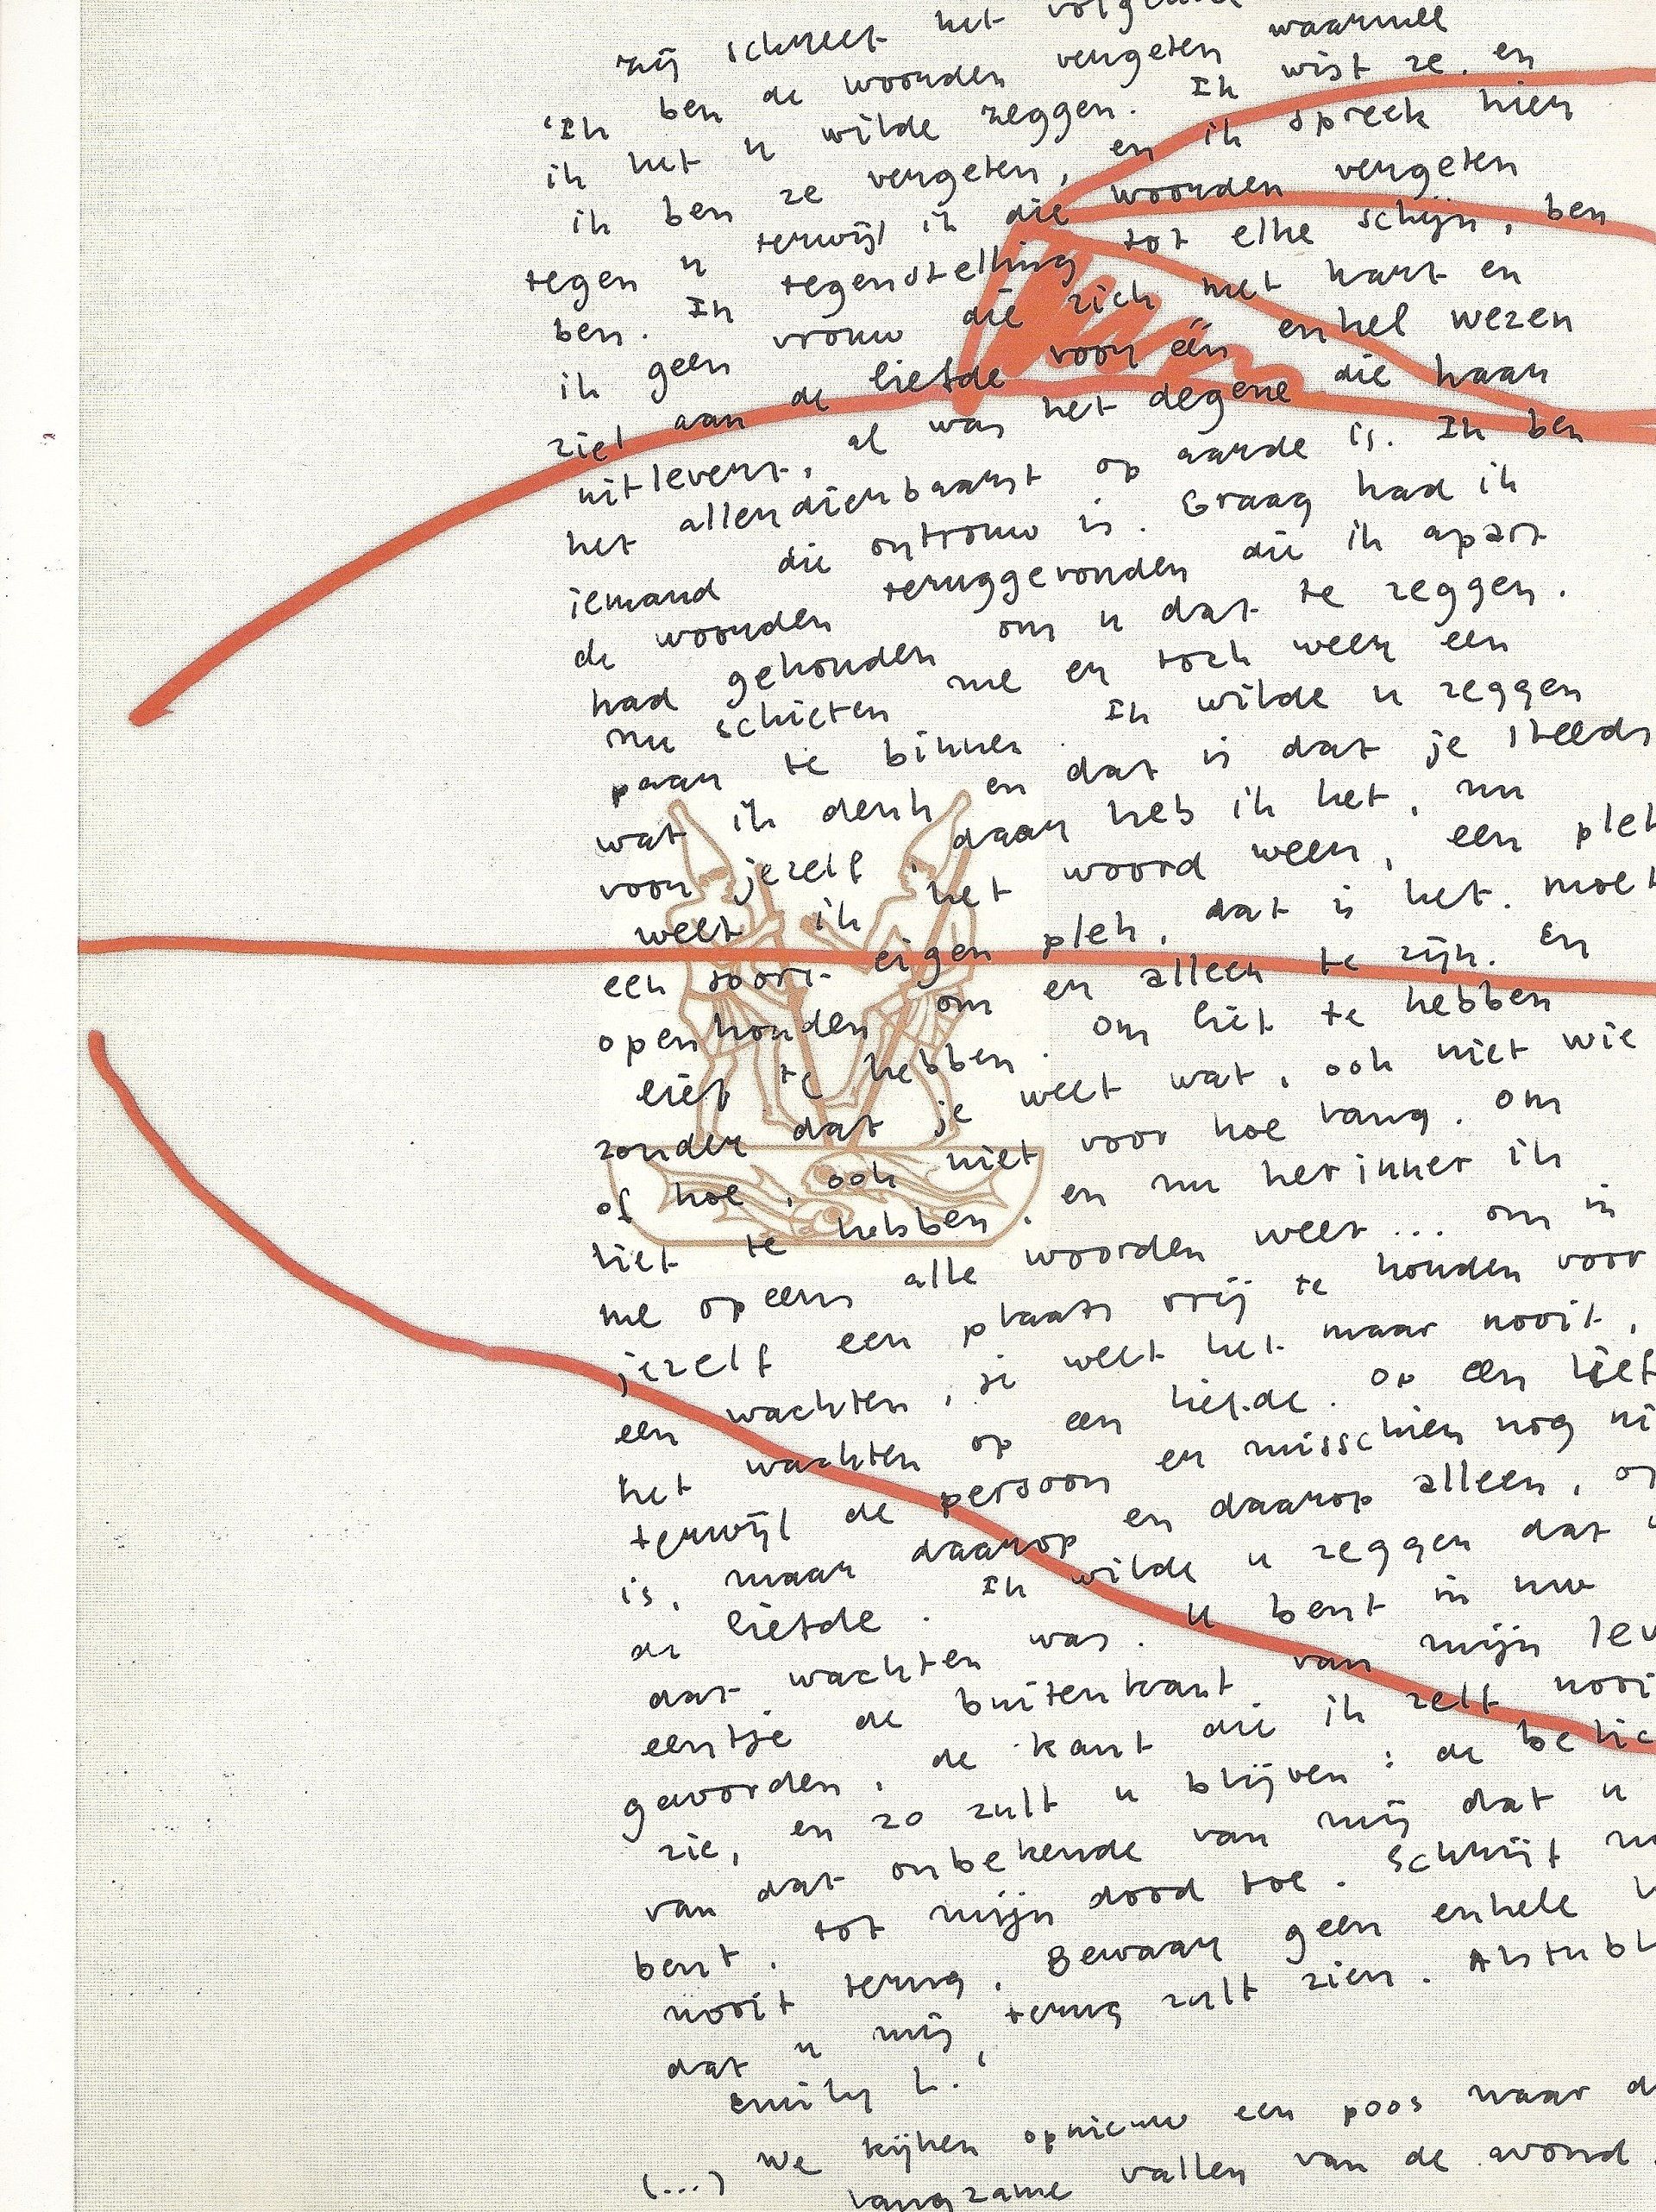 zij schreef het
'Ik ben de woorden vergeten waarmee
ik het u wilde zeggen. Ik wist ze, en
ik ben ze vergeten, en ik spreek hier
tegen u terwijl ik die woorden vergeten
ben. In tegenstelling tot elke schijn, ben
ik geen vrouw die zich met hart en
ziel aan de liefde voor één enkel wezen
uitlevert, al was het degene die haar
het allerdierbaarst op aarde is. Ik ben
iemand die ontrouw is. Graag had ik
de woorden teruggevonden die ik apart
had gehouden om u dat te zeggen.
nu schieten me er toch weer een
paar te binnen. Ik wilde u zeggen
wat ik denk en dat is dat je steeds
voor jezelf, daar heb ik het, nu
weet ik het woord weer, een plek
een soort eigen plek, dat is het. moet
openhouden om er alleen te zijn. En
lief te hebben. om lief te hebben
zonder dat je weet wat, ook niet wie
of hoe, ook niet voor hoe lang. om
lief te hebben, en nu herinner ik
me opeens alle woorden weer... om in
jezelf een plaats vrij te houden voor
een wachten, je weet het maar nooit,
het wachten op een liefde. op een lief
terwijl de persoon er misschien nog ni
is, maar daarop en daarop alleen, op
de liefde. Ik wilde u zeggen dat u
dat wachten was. u bent in uw
eentje de buitenkant van mijn lev
geworden, de kant die ik zelf nooi
zie, en zo zult u blijven: de
van dat onbekende van mij dat u
bent, tot mijn dood toe. Schrijf m
nooit terug. Bewaar geen enkele
dat u mij terug zult zien. Alstubl
Emily L.'
(...) We kijken opnieuw een poos naar d
langzame vallen van de avond.